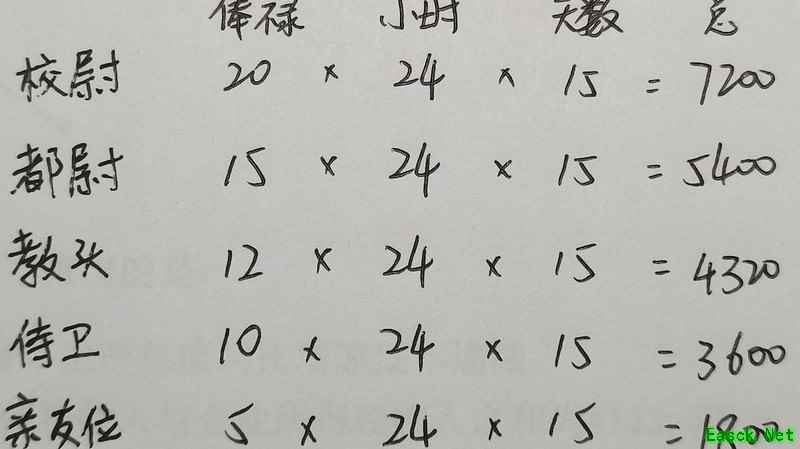 俸禄 小时 天数 总
校尉 20 × 24 × 15 = 7200
都尉 15 × 24 × 15 = 5400
教头 12 × 24 × 15 = 4320
侍卫 10 × 24 × 15 = 3600
亲友位 5 × 24 × 15 = 1800
Easck.Net